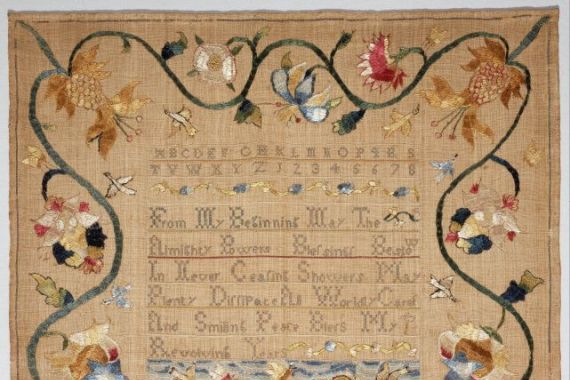 ABCDEFGHIKLMNOPQRS
TVWXYZ12345678
From My Beginning May The
Almighty Powers Blessings Bestow
In Never Ceasing Showers May
Plenty Dissipate All Worldly Cares
And Smiling Peace Bless My
Revolving Years